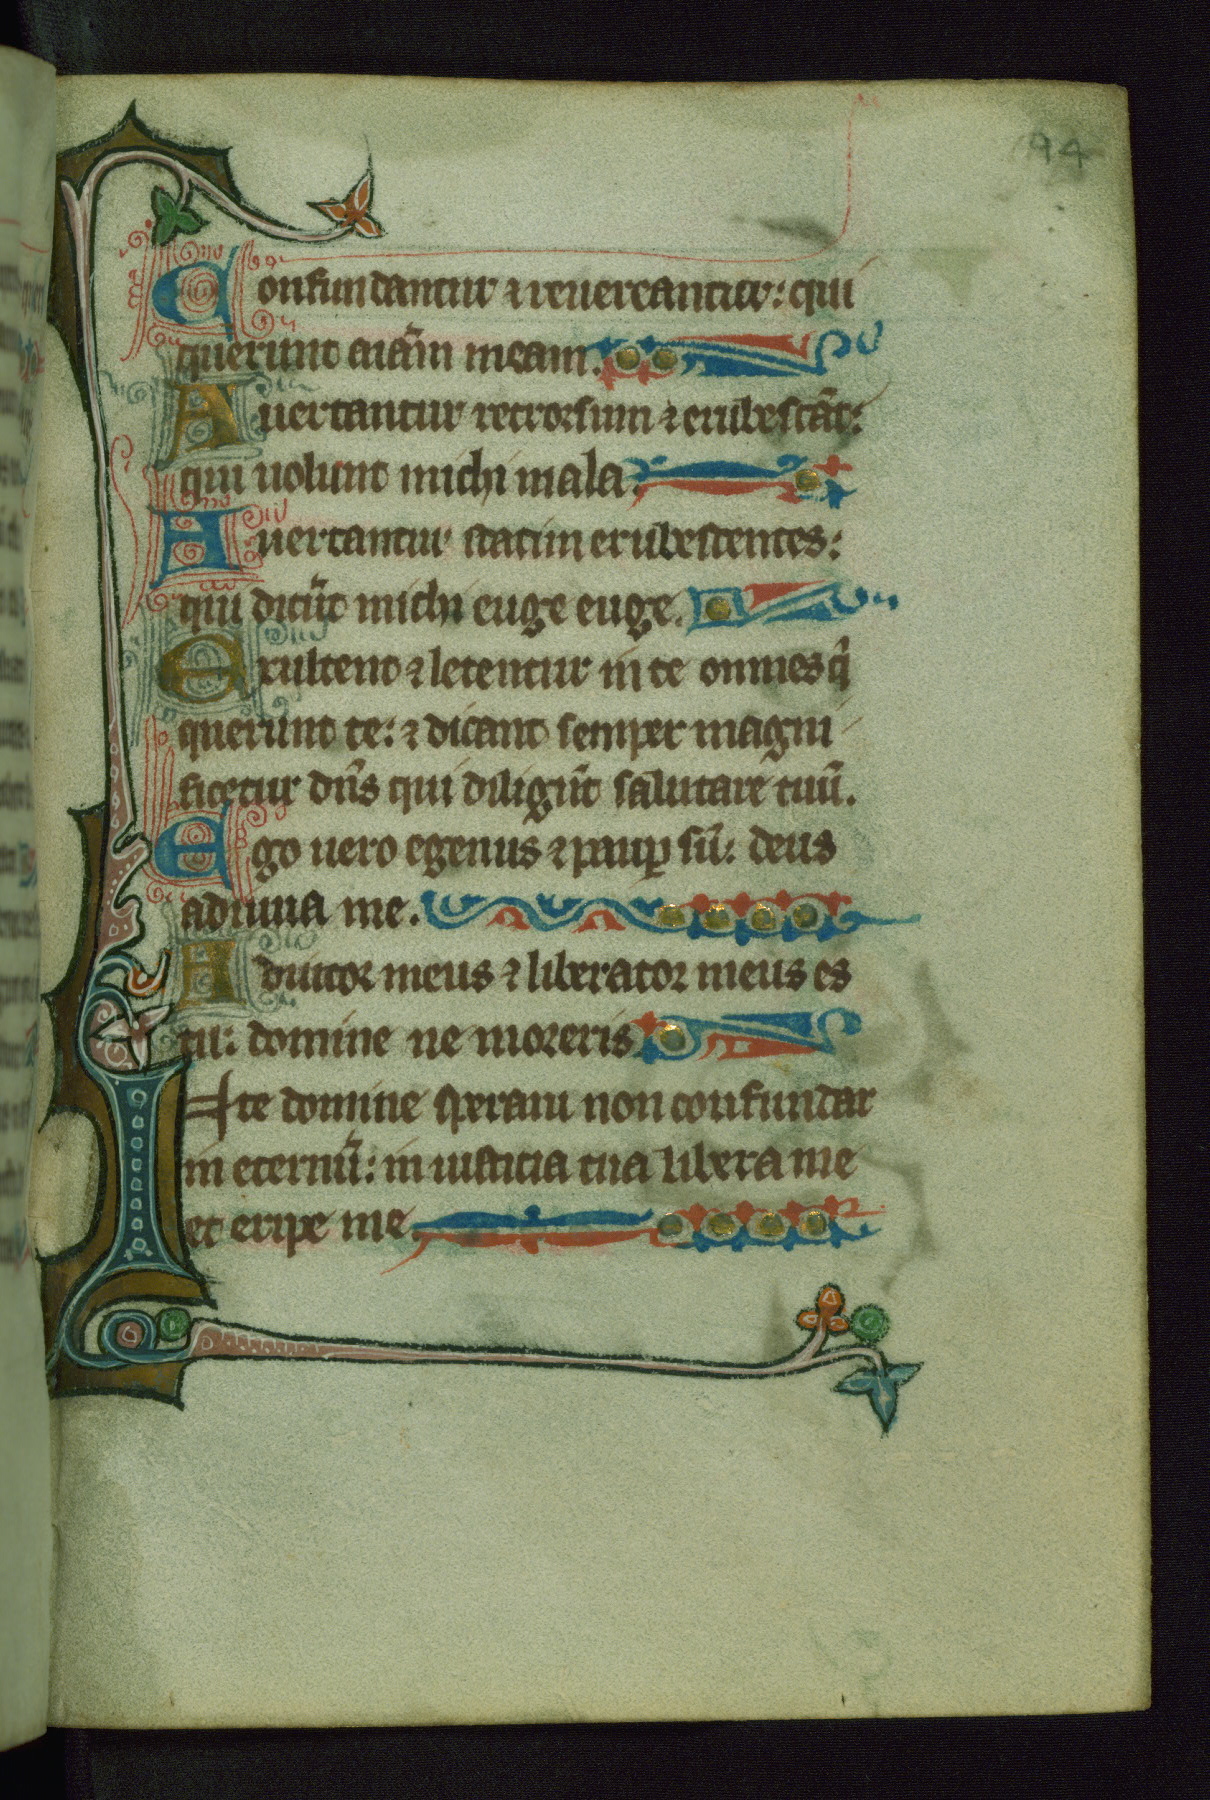 194
Confundantur ⁊ reuereantur: qui
querunt aı̄am meam.
Auertantur retrorsum ⁊ erubescāt:
qui uolunt michi mala.
Auertantur statim erubescentes:
qui dicūt michi euge euge.
Exultent ⁊ letentur in te omnes q̄
querunt te: ⁊ dicant semper magni
ficetur dn̄s qui diligūt salutare tuū.
Ego uero egenus ⁊ paup̲ sū: deus
adiuua me.
Adiutor meus ⁊ liberator meus es
tu: domine ne moreris
In te domine speraui non confundar
in eternū: in iusticia tua libera me
et eripe me.